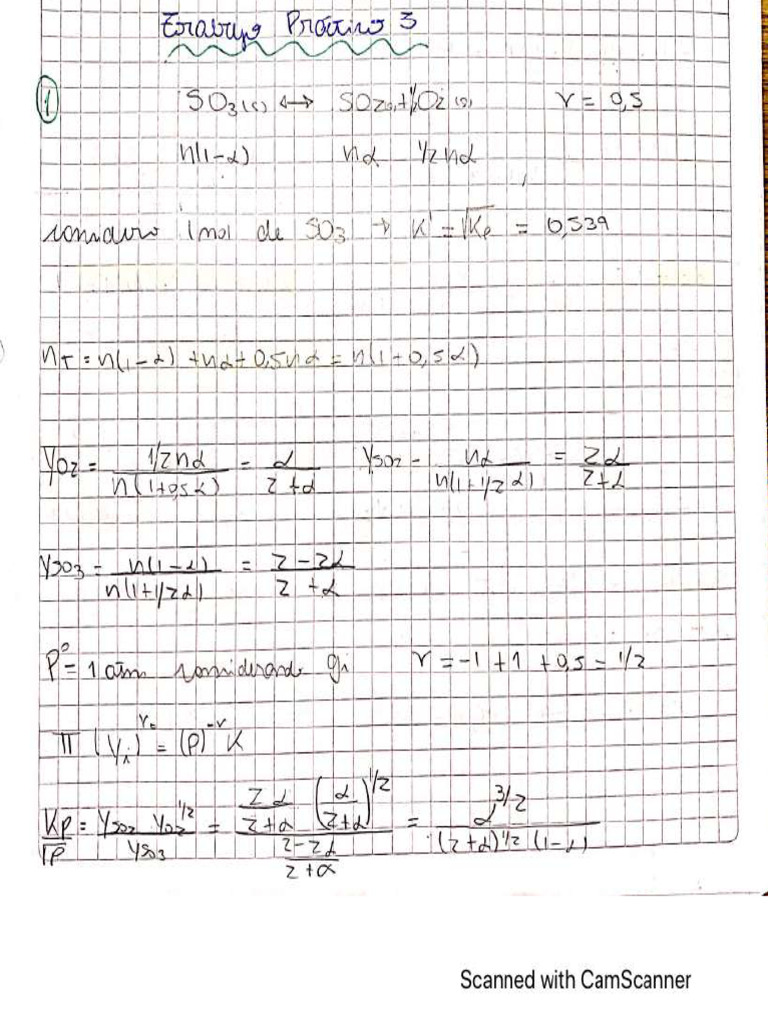 Trabajo Práctico 3
1 SO3(g) ↔ SO2(g) + ½O2(g) ν = 0,5
n(1-α) nα ½nα
considero 1mol de SO3 → K' = √Kp = 0,539
nT = n(1-α) + nα + 0,5nα = n(1+0,5α)
yO2 = ½nα / n(1+0,5α) = α / 2+α ySO2 = nα / n(1+½α) = 2α / 2+α
ySO3 = n(1-α) / n(1+½α) = 2-2α / 2+α
P° = 1 atm considerando gi ν = -1+1+0,5 = ½
Π (yi)^νi = (P)^-ν K
Kp / √P = ySO2 yO2^½ / ySO3 = 2α/2+α (α/2+α)^1/2 / 2-2α/2+α = α^3/2 / (2+α)^½ (1-α)
Scanned with CamScanner